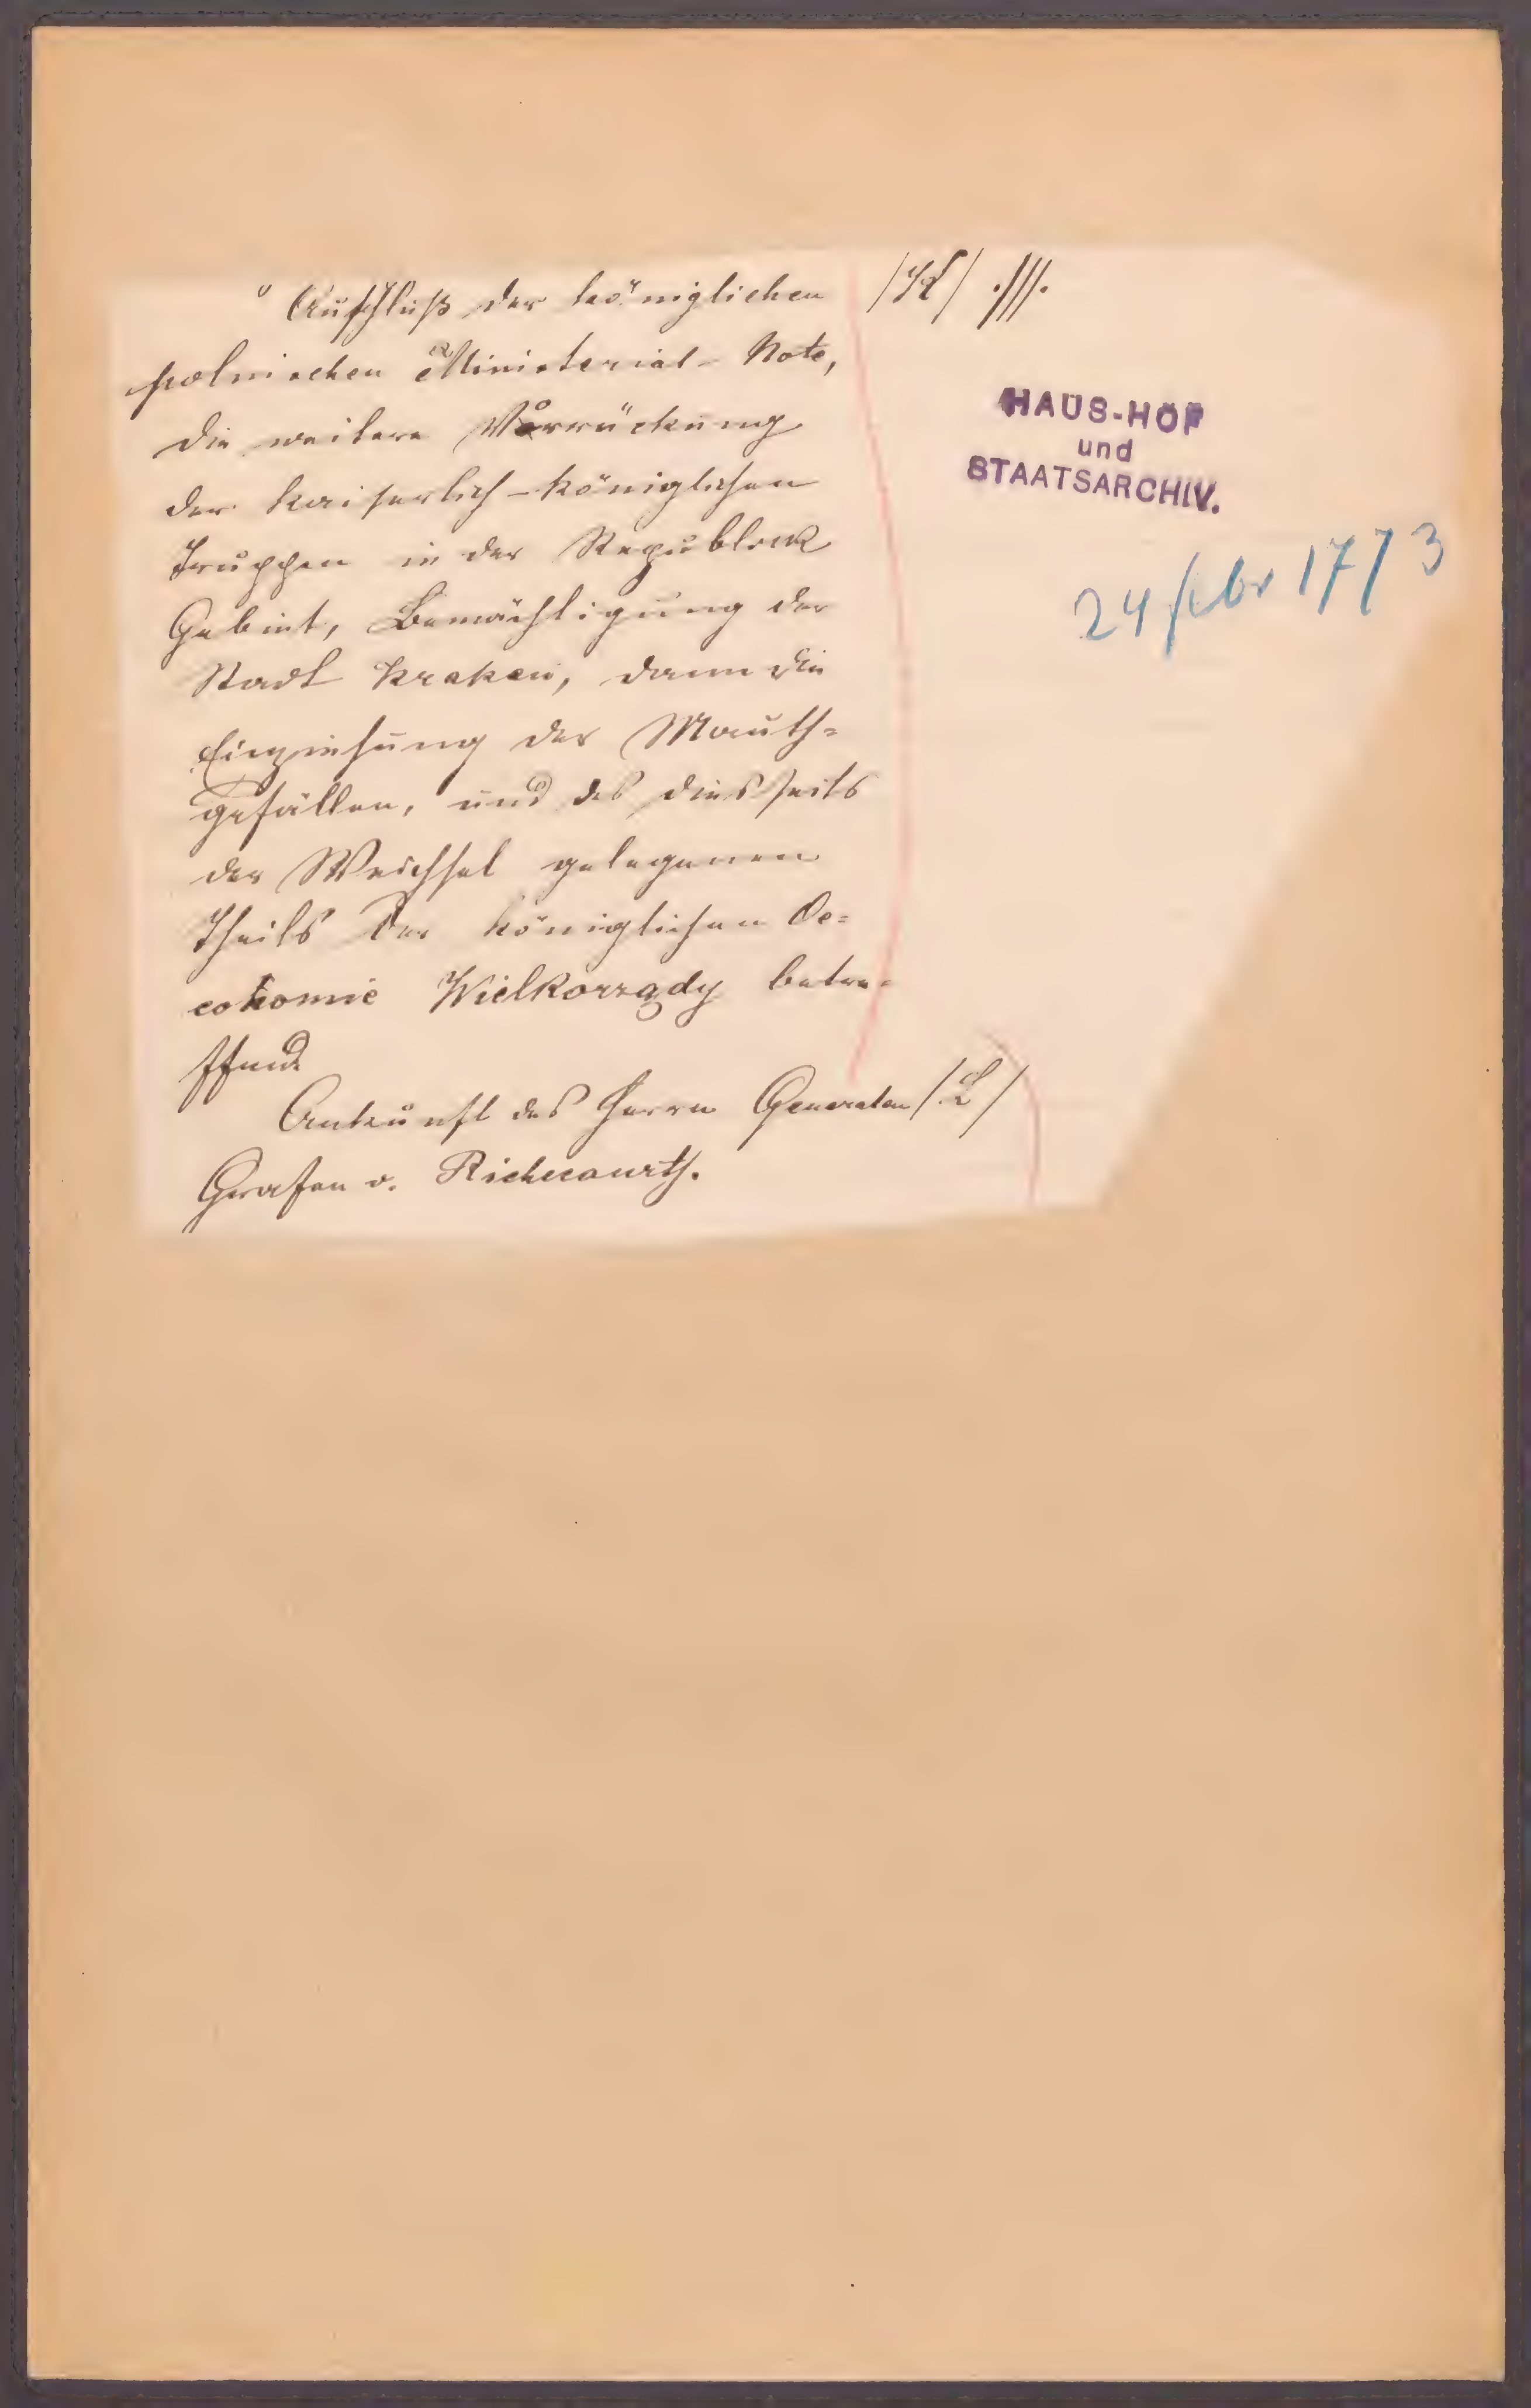 Aufschluß der königlichen /K/ .///.
polnischen Ministerial-Note,
die weitere Vorrückung
der kaiserlich-königlichen
Truppen in der Republick
Gebiet, Bemächtigung der
Stadt Krakau, dann die
Einziehung der Mauth=
gefällen, und des diesseits
der Weichsel gelegenen
Theils der königlichen Oe=
conomie Wielkorządy betre=
ffend.
Ankunft des Herrn Generalen /L/
Grafen v. Richecourth.
HAUS-HOF
und
STAATSARCHIV.
24 febr 1773